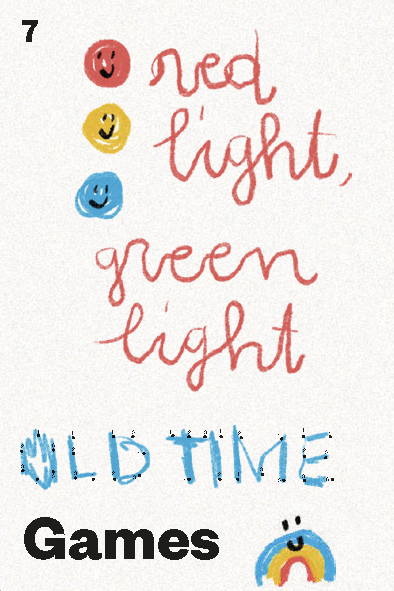 7
red
light,
green
light
OLD TIME
Games